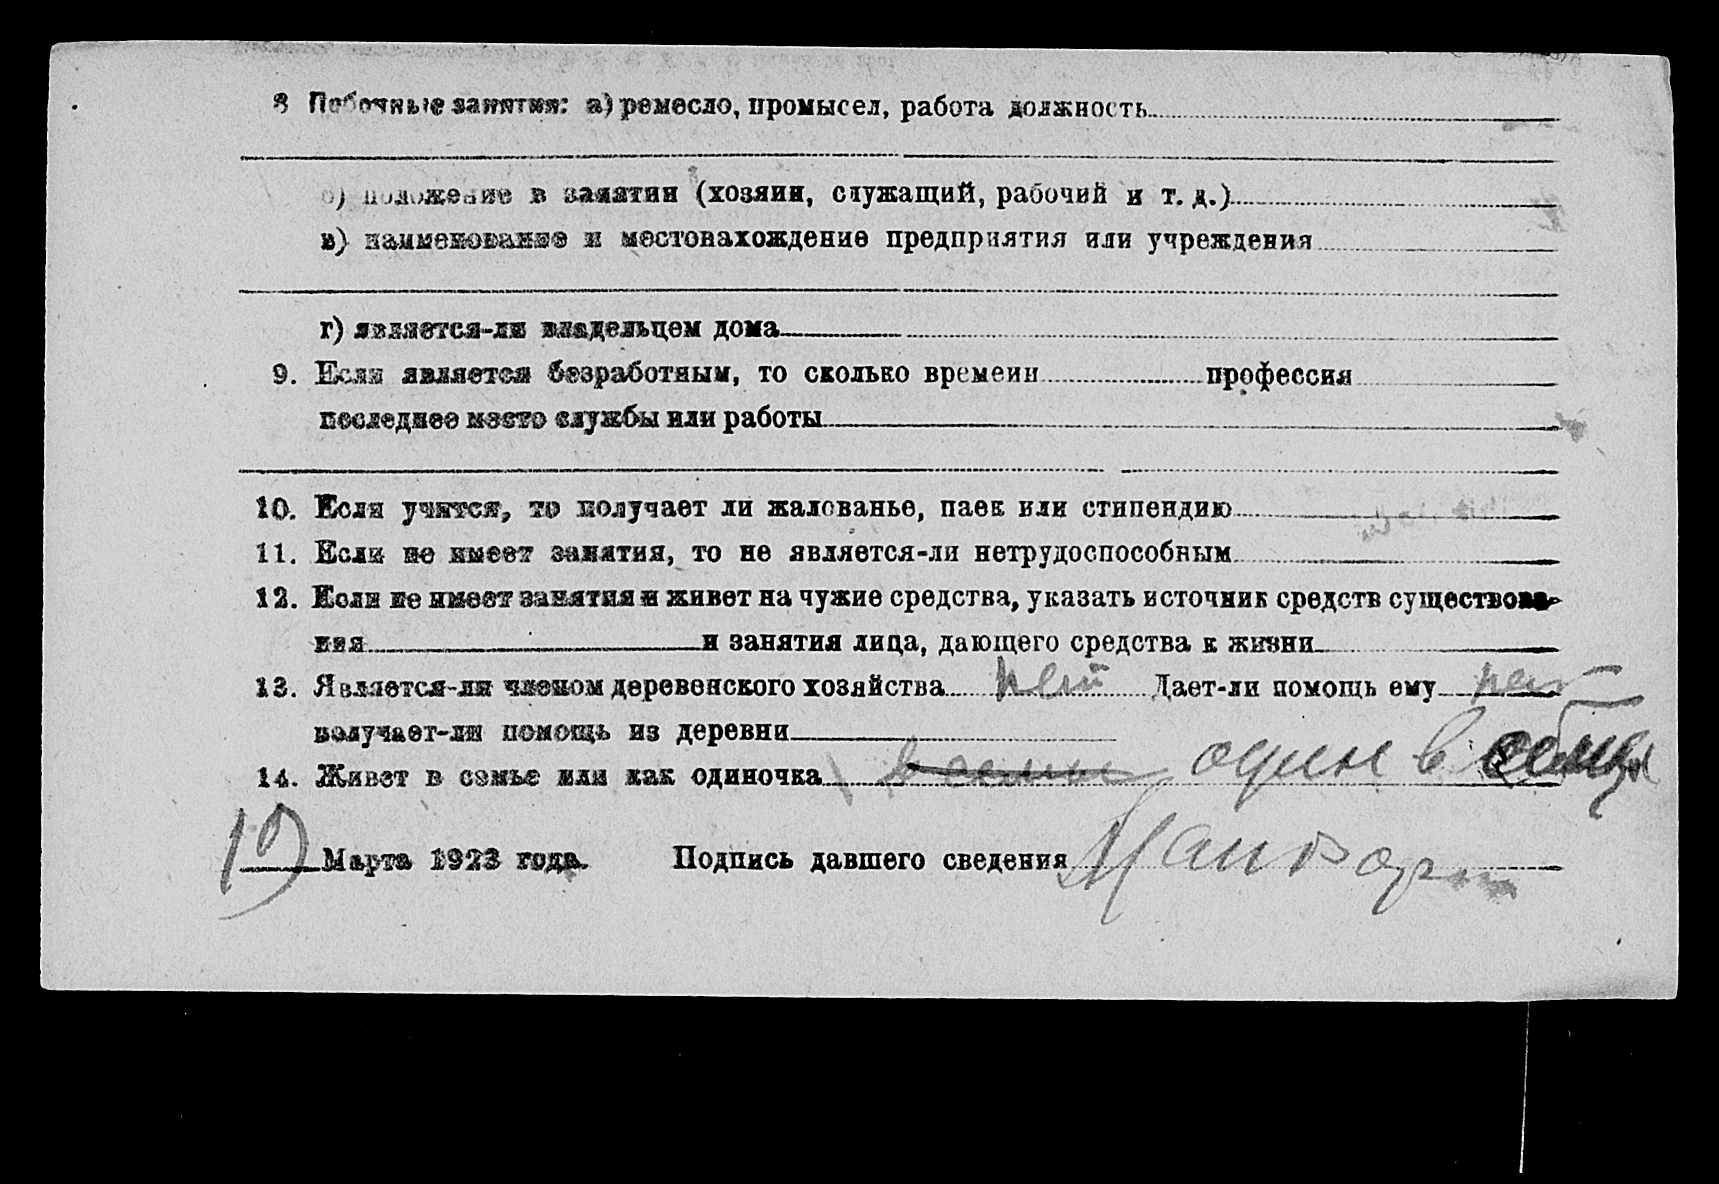 8 Побочные занятия: а) ремесло, промысел, работа должность
б) положение в занятии (хозяин, служащий, рабочий и т. д.)
в) наименование и местонахождение предприятия или учреждения
г) является-ли владельцем дома
9. Если является безработным, то сколько времени профессия
последнее место службы или работы
10. Если учится, то получает ли жалованье, паек или стипендию
11. Если не имеет занятия, то не является-ли нетрудоспособным
12. Если не имеет занятия и живет на чужие средства, указать источник средств существова-
ния и занятия лица, дающего средства к жизни
13. Является-ли членом деревенского хозяйства нет Дает-ли помощь ему нет
получает-ли помощь из деревни
14. Живет в семье или как одиночка в семье один в
10 Марта 1923 года. Подпись давшего сведения